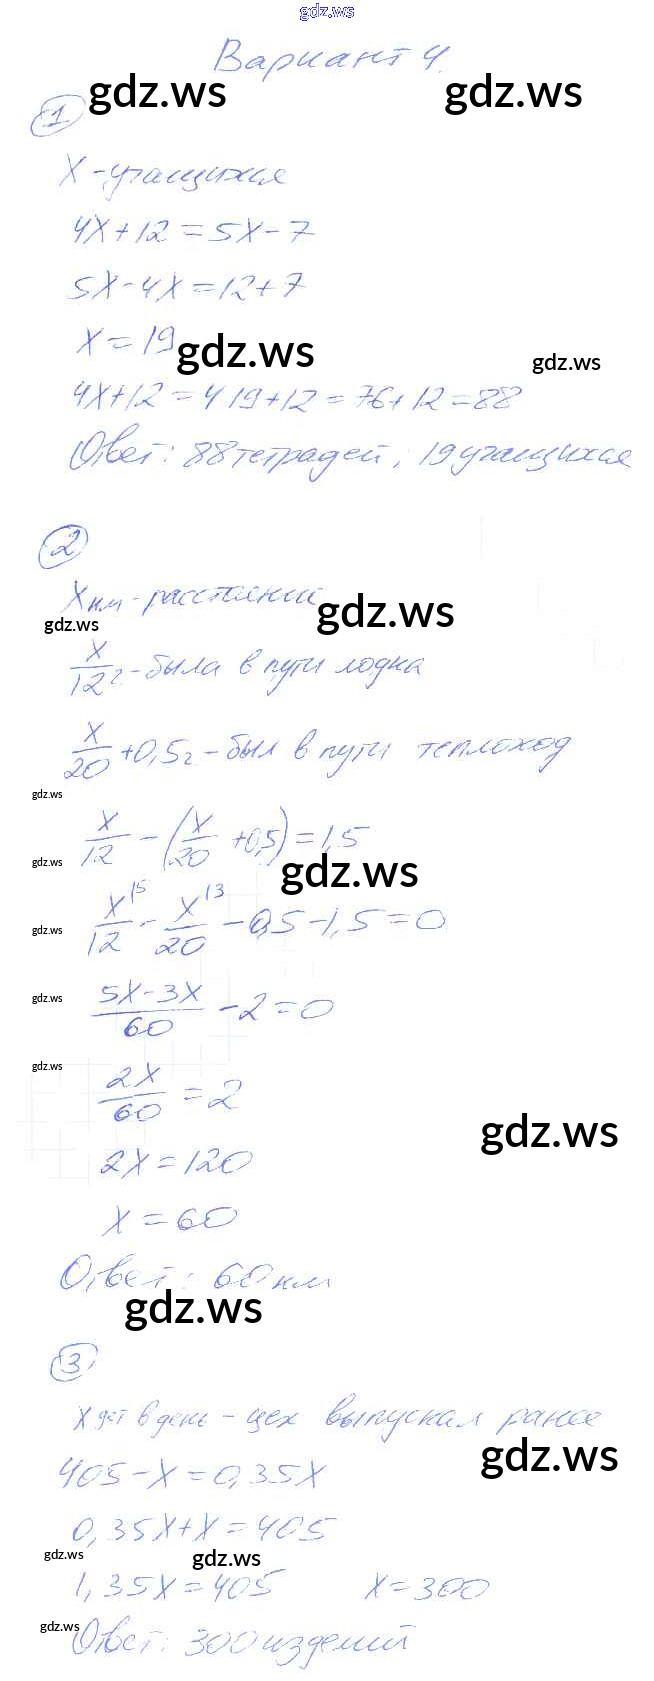 gdz.ws
Вариант 4.
gdz.ws gdz.ws
1
X - учащихся
4X + 12 = 5X - 7
5X - 4X = 12 + 7
X = 19
gdz.ws gdz.ws
4X + 12 = 4 19 + 12 = 76 + 12 = 88
Ответ: 88 тетрадей; 19 учащихся
2
X км - расстояние
gdz.ws gdz.ws
X/12 г - была в пути лодка
X/20 + 0,5 г - был в пути теплоход
gdz.ws
X/12 - (X/20 + 0,5) = 1,5
gdz.ws gdz.ws
X/12 |5 - X/20 |3 - 0,5 - 1,5 = 0
gdz.ws
5X - 3X/60 - 2 = 0
gdz.ws
2X/60 = 2
gdz.ws
gdz.ws
2X = 120
X = 60
Ответ: 60 км
gdz.ws
3
X дет в день - цех выпускал ранее
gdz.ws
405 - X = 0,35X
0,35X + X = 405
gdz.ws gdz.ws
1,35X = 405 X = 300
gdz.ws
Ответ: 300 изделий